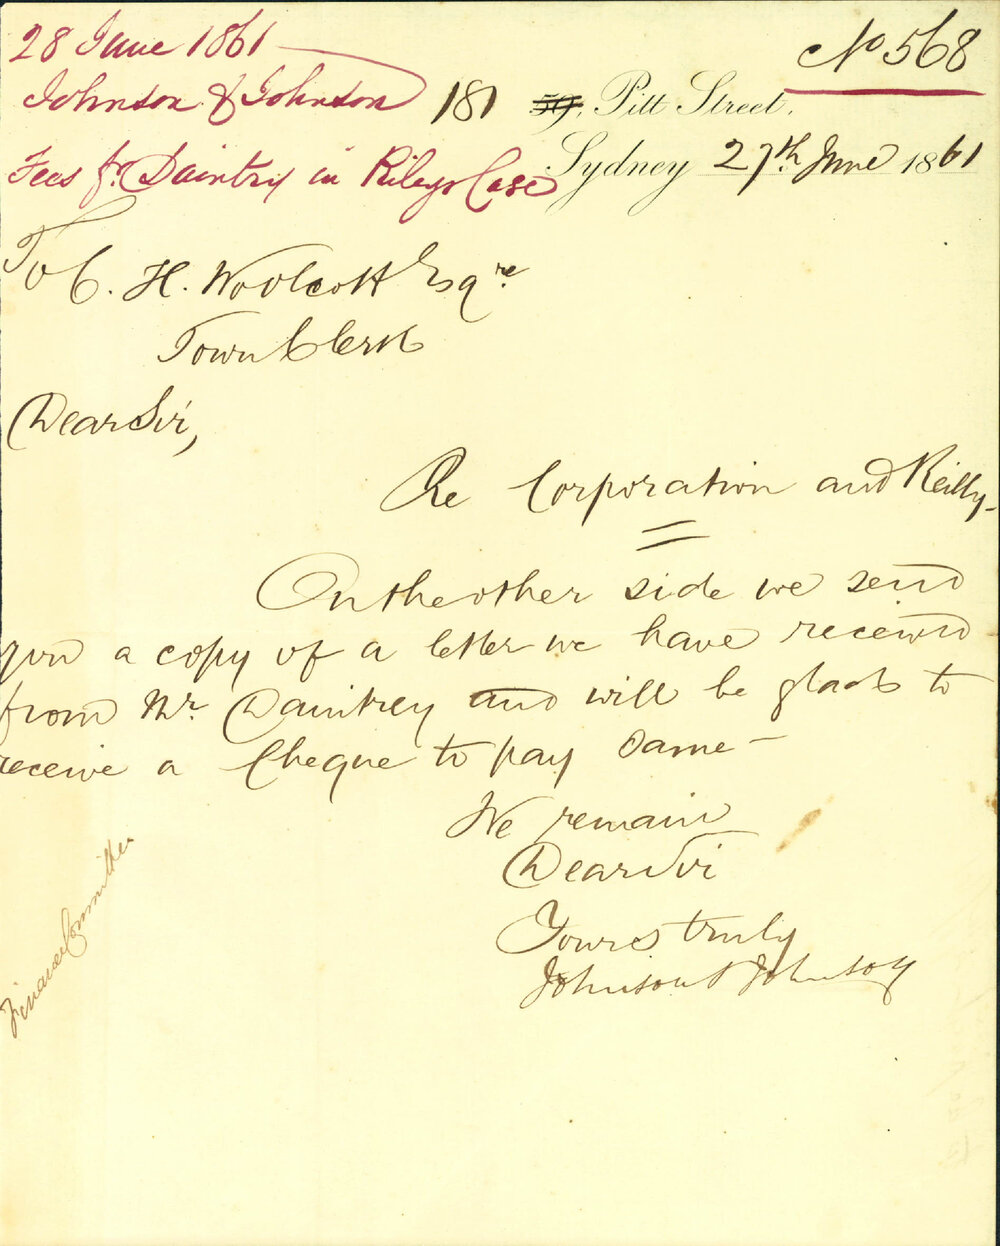 28 June 1861
Johnson & Johnson
Fees fr. Daintry in Rileys Case
No 568
181 59, Pitt Street,
Sydney 27th June 1861
To C. H. Woolcott Esqre.
Town Clerk
Dear Sir,
Re Corporation and Reilly-
On the other side we send
you a copy of a letter we have received
from Mr. Daintrey and will be glad to
receive a Cheque to pay same -
We remain
Dear Sir
Yours truly
Johnson & Johnson
Finance Committee